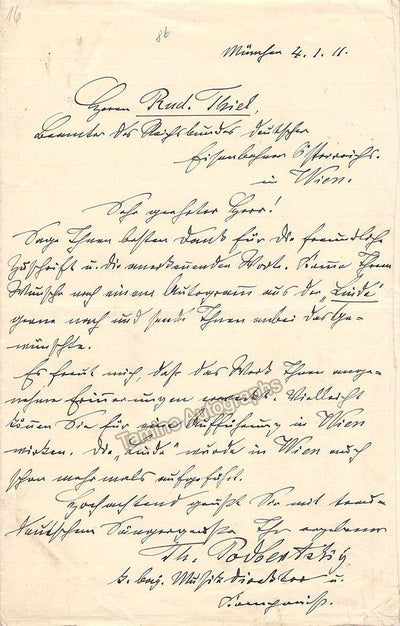 16
86
München 4.1.11.
Herrn Rud. Thiel,
Beamter des Reichsbundes deutscher
Eisenbahner Österreichs.
in Wien.
Sehr geehrter Herr!
Sage Ihnen besten Dank für die freundliche
Zuschrift u. die anerkennenden Worte. Komme Ihrem
Wunsche nach einem Autogramm aus der „Linde“
gerne nach und sende Ihnen anbei das Ge-
wünschte.
Es freut mich, daß das Werk Ihnen ange-
nehme Erinnerungen erweckt. Vielleicht
können Sie für eine Aufführung in Wien
wirken. Die „Linde“ wurde in Wien auch
schon mehrmals aufgeführt.
Hochachtend grüßt Sie mit treu-
deutschem Sängergruße Ihr ergebener
Th. Podbertsky
k. bay. Musikdirektor u.
Komponist.
Tamino Autographs